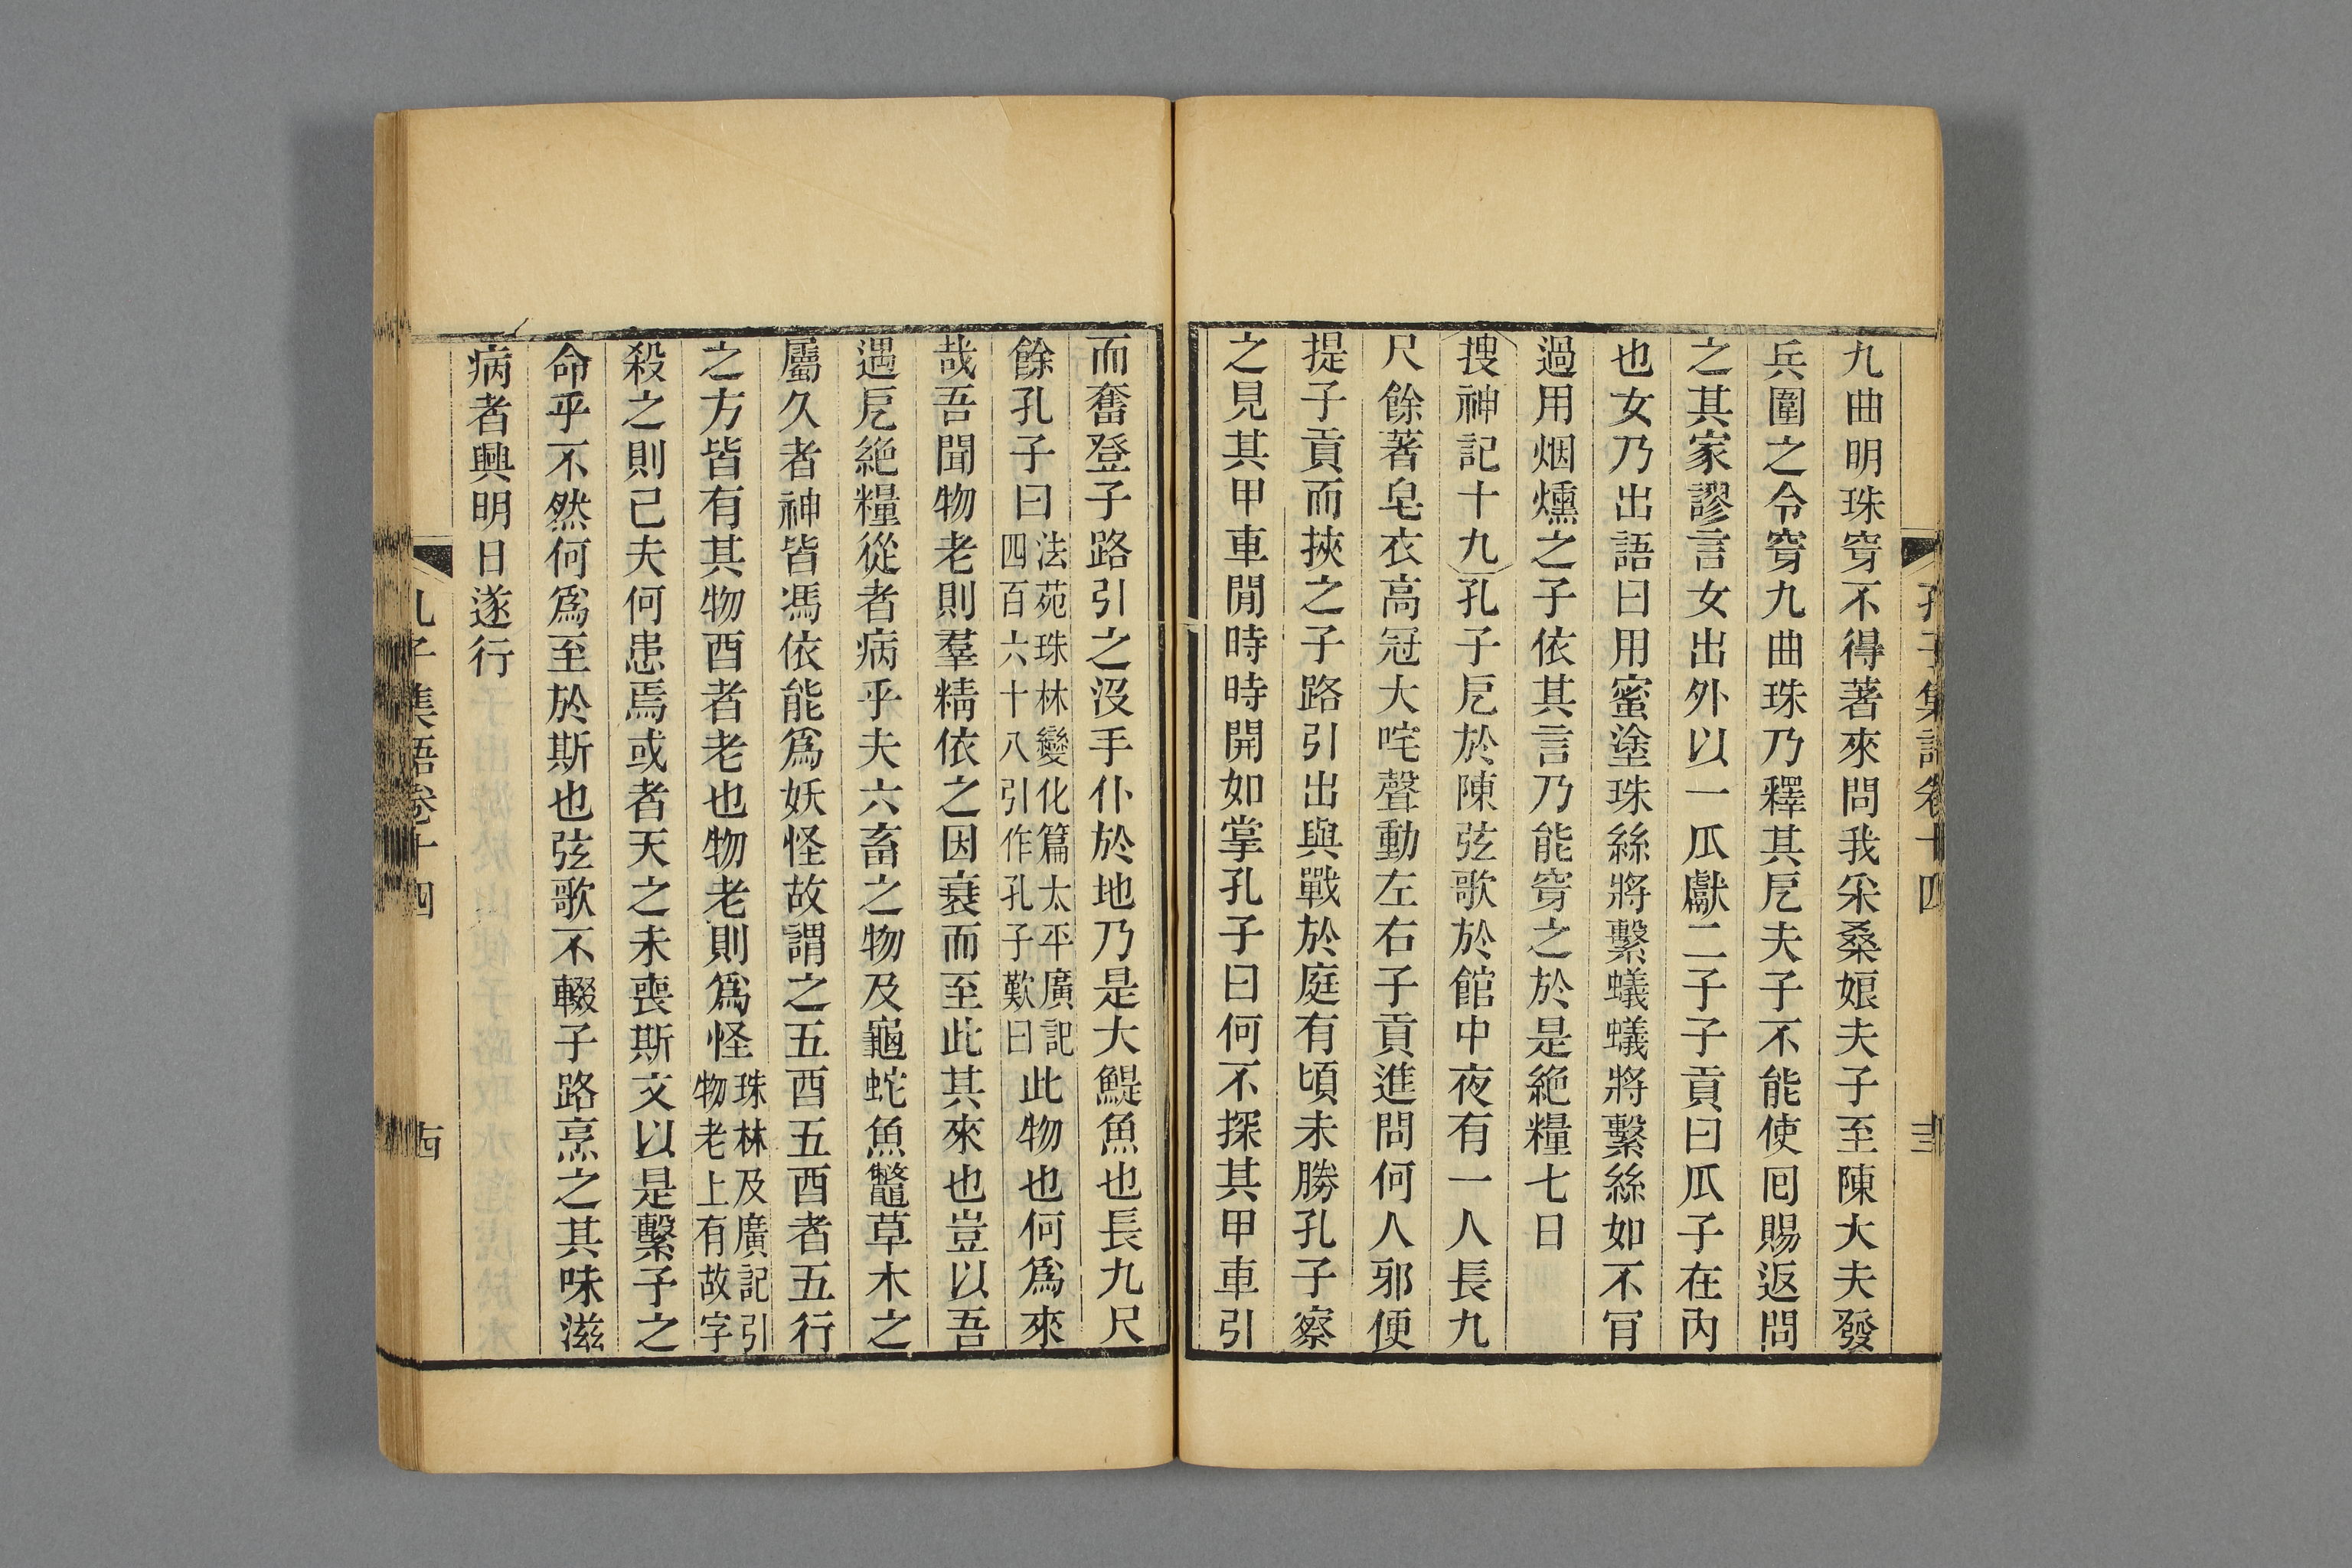 孔子集語卷十四
九曲明珠穿不得著來問我采桑娘夫子至陳大夫發
兵圍之令穿九曲珠乃釋其戹夫子不能使囘賜返問
之其家謬言女出外以一瓜獻二子子貢曰瓜子在內
也女乃出語曰用蜜塗珠絲將繫蟻蟻將繫絲如不肎
過用烟燻之子依其言乃能穿之於是絶糧七日
搜神記十九孔子戹於陳弦歌於館中夜有一人長九
尺餘著皂衣高冠大咤聲動左右子貢進問何人邪便
提子貢而挾之子路引出與戰於庭有頃未勝孔子察
之見其甲車閒時時開如掌孔子曰何不探其甲車引
而奮登子路引之沒手仆於地乃是大鯷魚也長九尺
餘孔子曰法苑珠林變化篇太平廣記四百六十八引作孔子歎曰此物也何爲來
哉吾聞物老則羣精依之因衰而至此其來也豈以吾
遇戹絶糧從者病乎夫六畜之物及龜蛇魚鼈草木之
屬久者神皆馮依能爲妖怪故謂之五酉五酉者五行
之方皆有其物酉者老也物老則爲怪珠林及廣記引物老上有故字
殺之則已夫何患焉或者天之未喪斯文以是繫予之
命乎不然何爲至於斯也弦歌不輟子路烹之其味滋
病者興明日遂行
孔子集語卷十四